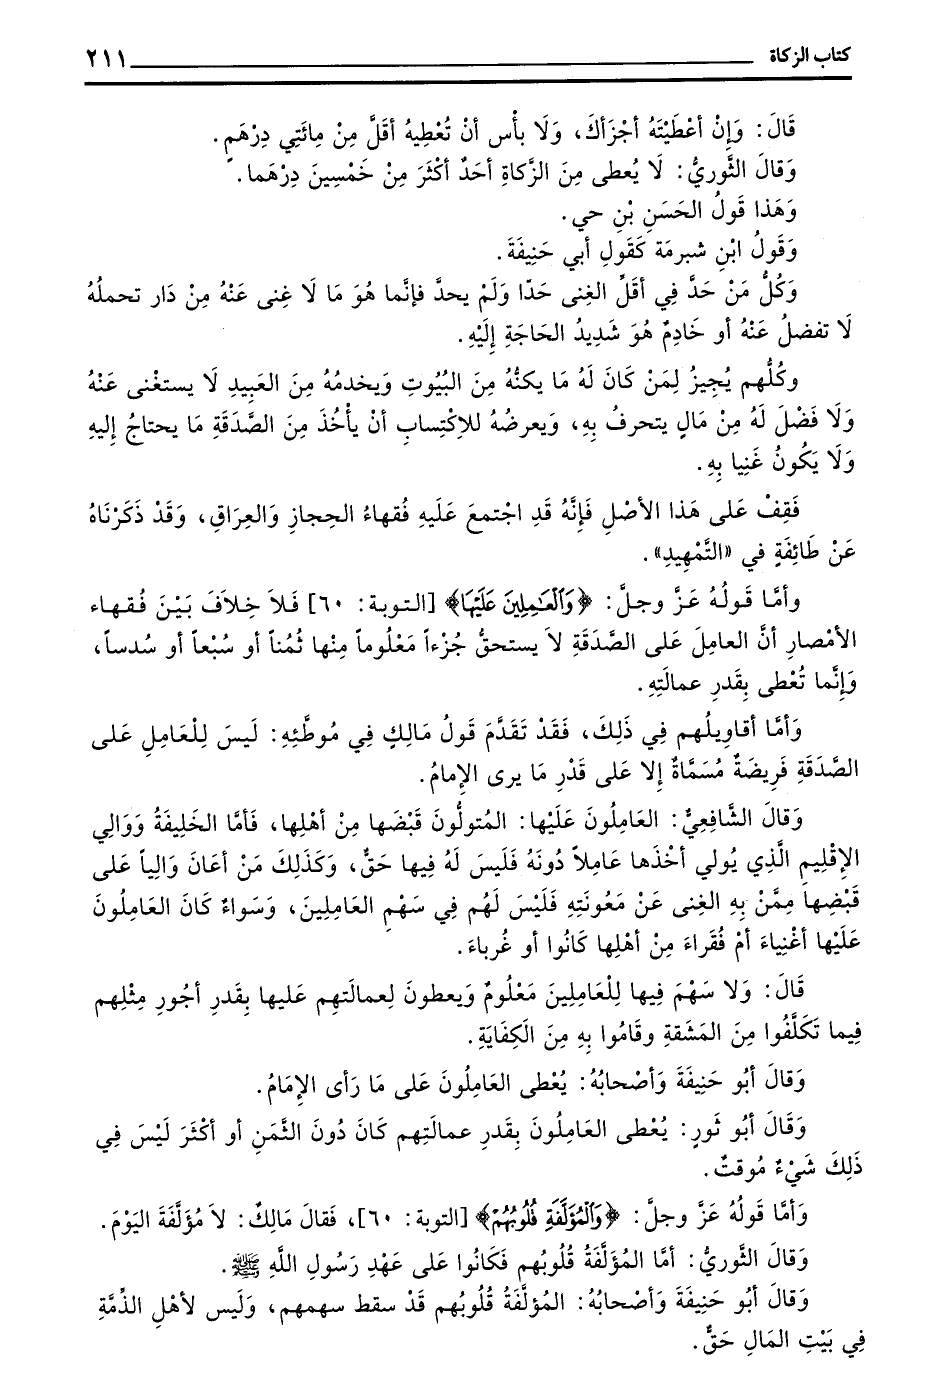 كتاب الزكاة ٢١١
قَالَ: وَإِنْ أعْطَيْتَهُ أجْزَأكَ، وَلَا بأْس أنْ تُعْطِيهُ أقَلَّ مِنْ مِائَتِي دِرْهَمٍ.
وَقالَ الثَّوريُّ: لَا يُعطى مِنَ الزَّكاةِ أحَدٌ أكْثَرَ مِنْ خَمْسِينَ دِرْهَما.
وَهَذا قَولُ الحَسَنِ بْنِ حي.
وَقَولُ ابْنِ شبرمَة كَقَولِ أبي حَنِيفَةَ.
وَكُلُّ مَنْ حَدَّ فِي أقَلِّ الغِنى حَدّا وَلَمْ يحدَّ فإنَّما هُوَ مَا لَا غِنى عَنْهُ مِنْ دَار تحملُهُ
لَا تفضلُ عَنْهُ أو خَادِمٌ هُوَ شَدِيدُ الحَاجَةِ إلَيْهِ.
وكُلُّهم يُجِيزُ لِمَنْ كَانَ لَهُ مَا يكنُّهُ مِنَ البُيُوتِ وَيخدمُهُ مِنَ العَبِيدِ لَا يستغْنى عَنْهُ
وَلَا فَضْلَ لَهُ مِنْ مَالٍ يتحرفُ بِهِ، وَيعرضُهُ للاِكْتِسابِ أنْ يأْخُذَ مِنَ الصَّدَقَةِ مَا يحتاجُ إليهِ
وَلَا يَكُونُ غَنِيا بِهِ.
فَقِفْ عَلى هَذا الأصْلِ فَإنَّهُ قَدِ اجْتمعَ عَلَيهِ فُقهاءُ الحِجازِ وَالعِرَاقِ، وَقَدْ ذَكَرْنَاهُ
عَنْ طَائِفَةٍ في «التَّمْهِيدِ».
وأمَّا قَولُهُ عَزَّ وجلَّ: ﴿وَٱلْعَٰمِلِينَ عَلَيْهَا﴾ [التوبة: ٦٠] فَلاَ خِلاَفَ بَيْنَ فُقهاء
الأمْصارِ أنَّ العامِلَ عَلى الصَّدَقَةِ لاَ يستحقُّ جُزْءاً مَعْلُوماً مِنْها ثُمُناً أو سُبْعاً أو سُدساً،
وَإنَّما تُعْطى بِقَدرِ عمالَتِهِ.
وَأمَّا أقاوِيلُهم فِي ذَلِكَ، فَقَدْ تَقَدَّمَ قَولُ مَالِكٍ فِي مُوطَّئِهِ: لَيسَ لِلْعَامِلِ عَلى
الصَّدَقَةِ فَرِيضَةٌ مُسَمَّاةٌ إلا عَلى قَدْرِ مَا يرى الإمامُ.
وَقالَ الشَّافِعيُّ: العَامِلُونَ عَلَيْها: المُتولُّونَ قَبْضَها مِنْ أهْلِها، فَأمَّا الخَلِيفَةُ وَوَالِي
الإقْلِيمِ الَّذِي يُولي أخْذَها عَامِلاً دُونَهُ فَلَيسَ لَهُ فِيها حَقٌّ، وَكَذَلِكَ مَنْ أعَانَ وَالِياً عَلى
قَبْضِها مِمَّنْ بِهِ الغِنى عَنْ مَعُونَتِهِ فَلَيْسَ لَهُم فِي سَهْمِ العَامِلِينَ، وَسَواءٌ كَانَ العَامِلُونَ
عَلَيْها أغْنِياءَ أمْ فُقَراءَ مِنْ أهْلِها كَانُوا أو غُرباءَ.
قَالَ: وَلا سَهْمَ فِيها لِلْعَامِلِينَ مَعْلُومٌ وَيعطونَ لِعمالَتهِم عَليها بِقَدرِ أجُورِ مِثْلِهم
فِيما تَكَلَّفُوا مِنَ المَشَقةِ وقَامُوا بِهِ مِنَ الكِفَايَةِ.
وَقالَ أبُو حَنِيفَةَ وَأصْحابُهُ: يُعْطى العَامِلُونَ عَلى مَا رَأى الإمَامُ.
وَقَالَ أبُو ثَورٍ: يُعْطى العَامِلُونَ بِقَدرِ عمالَتِهم كَانَ دُونَ الثَّمَنِ أو أكْثَرَ لَيْسَ فِي
ذَلِكَ شَيْءٌ مُوقتٌ.
وَأمَّا قَولُهُ عَزَّ وجلَّ: ﴿وَٱلْمُؤَلَّفَةِ قُلُوبُهُمْ﴾ [التوبة: ٦٠]، فَقالَ مَالِكٌ: لاَ مُؤلَّفَةَ اليَوْمَ.
وَقَالَ الثَّوريُّ: أمَّا المُؤلَّفَةُ قُلُوبُهم فَكَانُوا عَلى عَهْدِ رَسُولِ اللَّهِ ﷺ.
وَقالَ أبُو حَنِيفَةَ وَأصْحابُهُ: المُؤلَّفَةُ قُلُوبُهم قَدْ سقط سهمهم، وَلَيس لأهْلِ الذِّمَّةِ
فِي بَيْتِ المَالِ حَقٌّ.